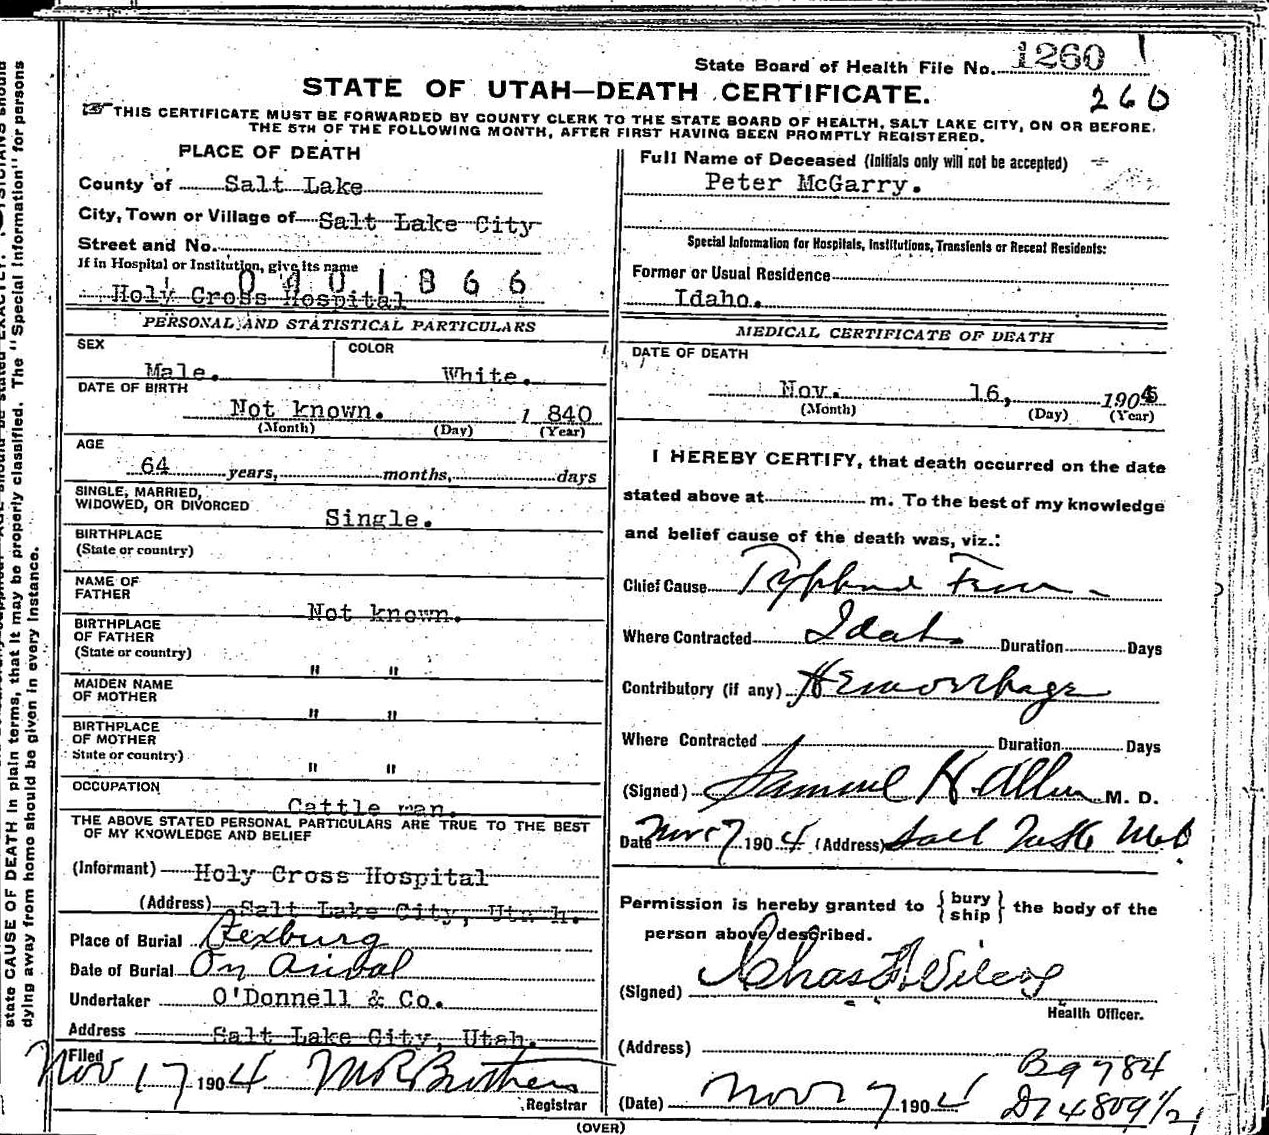 State Board of Health File No. 1260
STATE OF UTAH—DEATH CERTIFICATE.
260
THIS CERTIFICATE MUST BE FORWARDED BY COUNTY CLERK TO THE STATE BOARD OF HEALTH, SALT LAKE CITY, ON OR BEFORE
THE 5TH OF THE FOLLOWING MONTH, AFTER FIRST HAVING BEEN PROMPTLY REGISTERED.
PLACE OF DEATH
County of Salt Lake
City, Town or Village of Salt Lake City
Street and No.
If in Hospital or Institution, give its name
0401866
Holy Cross Hospital
PERSONAL AND STATISTICAL PARTICULARS
SEX COLOR
Male. White.
DATE OF BIRTH
Not known. 1 840
(Month) (Day) (Year)
AGE
64 years, months, days
SINGLE, MARRIED,
WIDOWED, OR DIVORCED
Single.
BIRTHPLACE
(State or country)
NAME OF
FATHER
Not known.
BIRTHPLACE
OF FATHER
(State or country)
" "
MAIDEN NAME
OF MOTHER
" "
BIRTHPLACE
OF MOTHER
State or country)
" "
OCCUPATION
Cattle man.
THE ABOVE STATED PERSONAL PARTICULARS ARE TRUE TO THE BEST
OF MY KNOWLEDGE AND BELIEF
(Informant) Holy Cross Hospital
(Address) Salt Lake City, Utah.
Place of Burial Rexburg
Date of Burial On arival
Undertaker O'Donnell & Co.
Address Salt Lake City, Utah.
Filed
Nov 17 1904 M R Brothers
Registrar
Full Name of Deceased (Initials only will not be accepted)
Peter McGarry.
Special Information for Hospitals, Institutions, Transients or Recent Residents:
Former or Usual Residence
Idaho.
MEDICAL CERTIFICATE OF DEATH
DATE OF DEATH
Nov. 16, 1904
(Month) (Day) (Year)
I HEREBY CERTIFY, that death occurred on the date
stated above at m. To the best of my knowledge
and belief cause of the death was, viz.:
Chief Cause Typhoid Fever
Where Contracted Idaho Duration Days
Contributory (if any) Hemorrhage
Where Contracted Duration Days
(Signed) Samuel H. Allen M. D.
Date Nov 17 1904 (Address) Salt Lake
Permission is hereby granted to {bury
ship} the body of the
person above described.
(Signed) Chas F. Wilcox
Health Officer.
(Address)
B9784
(Date) Nov 17 1904
D14809 1/2
(OVER)
state CAUSE OF DEATH in plain terms, that it may be properly classified. The "Special Information" for persons
dying away from home should be given in every instance.